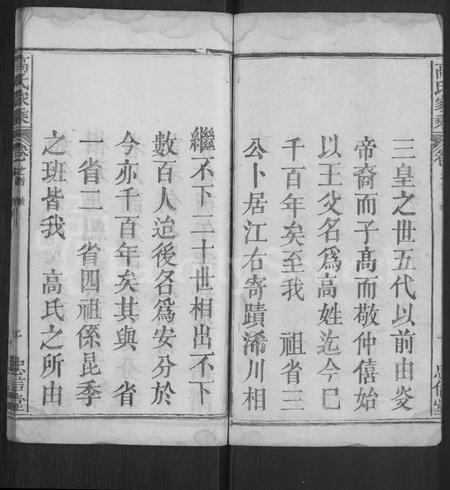 三皇之世五代以前由炎
帝裔而子高而敬仲僖始
以王父名為高姓迄今巳
千百年矣至我　祖省三
公卜居江右寄蹟浠川相
繼不下二十世相出不下
數百人迨後各為安分於
今亦千百年矣其與　省
一省二　省四祖係昆季
之班皆我　高氏之所由
高氏家乘
高氏家乘
忠信堂
忠信堂